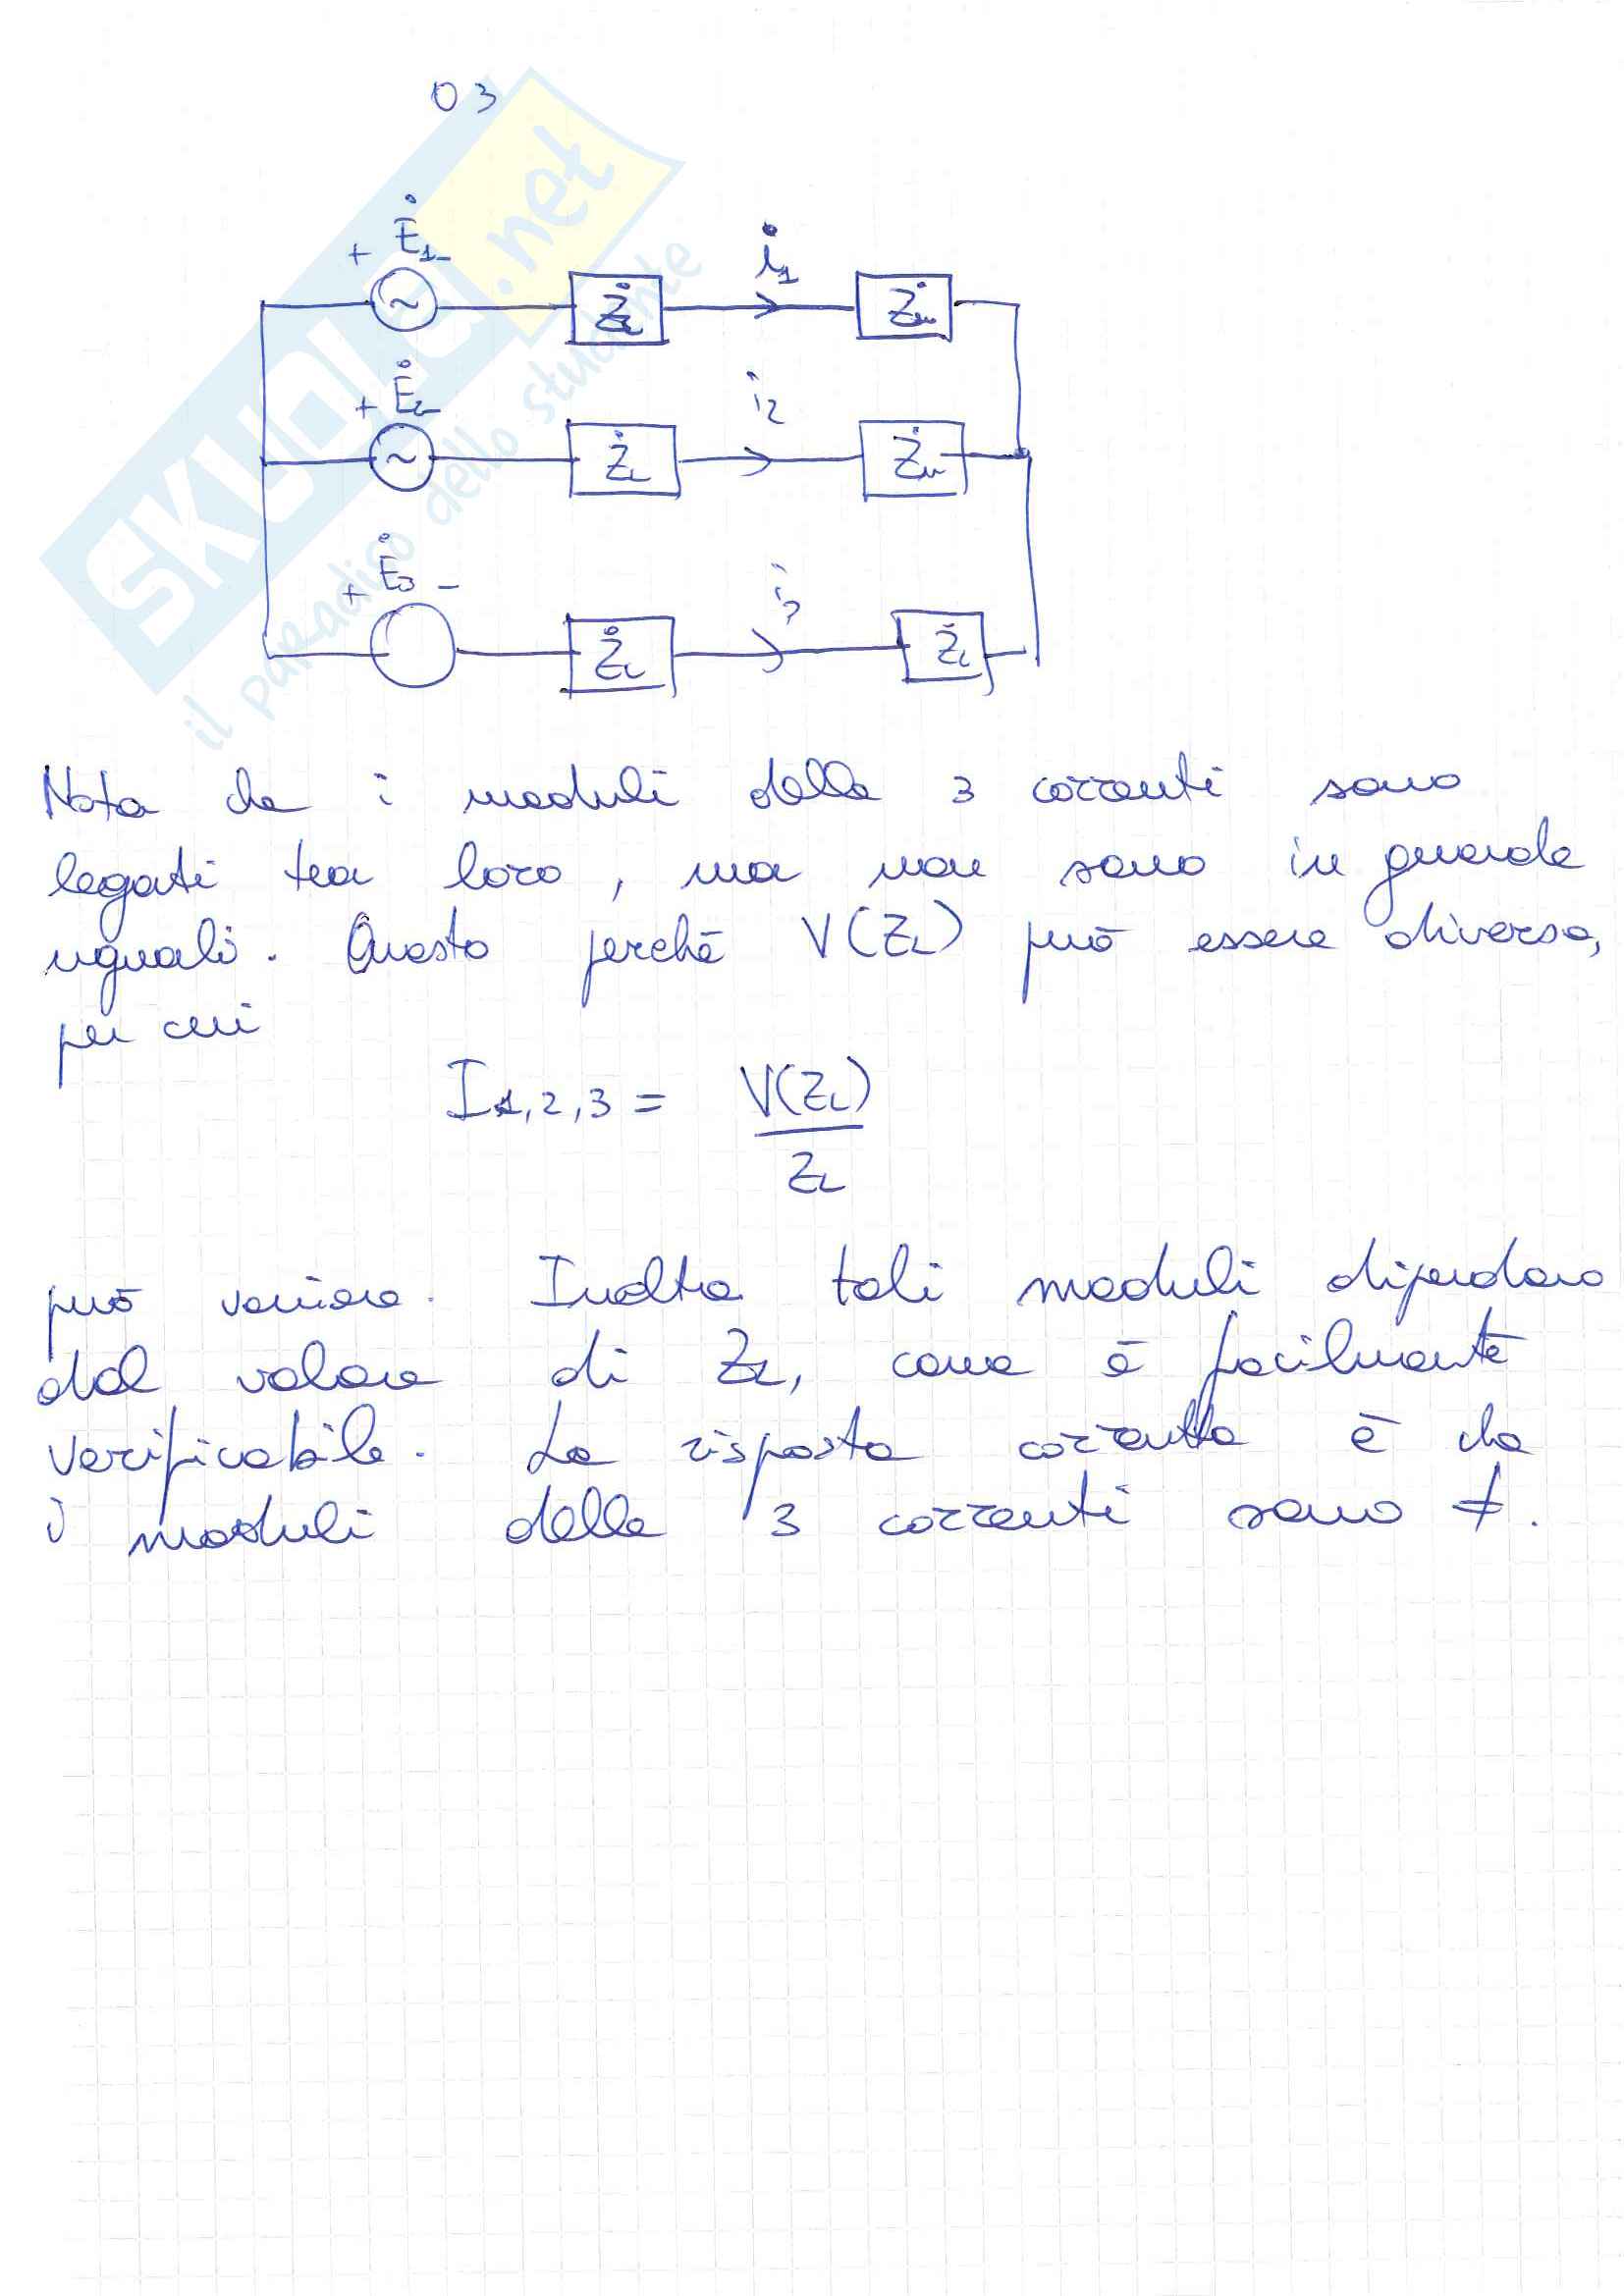 03
SKUOLA.net
il paradiso dello studente
+ Ė1 -
Ż_L
i1
Żu
+ Ė2 -
Ż_L
i2
Żu
+ Ė3 -
Ż_L
i3
Ż_L
Nota che i moduli delle 3 correnti sono
legati tra loro, ma non sono in generale
uguali. Questo perché V(Z_L) può essere diversa,
per cui
I1,2,3 = V(Z_L) / Z_L
può variare. Inoltre tali moduli dipendono
dal valore di Z_L, come è facilmente
verificabile. La risposta corretta è che
i moduli delle 3 correnti sono ≠.